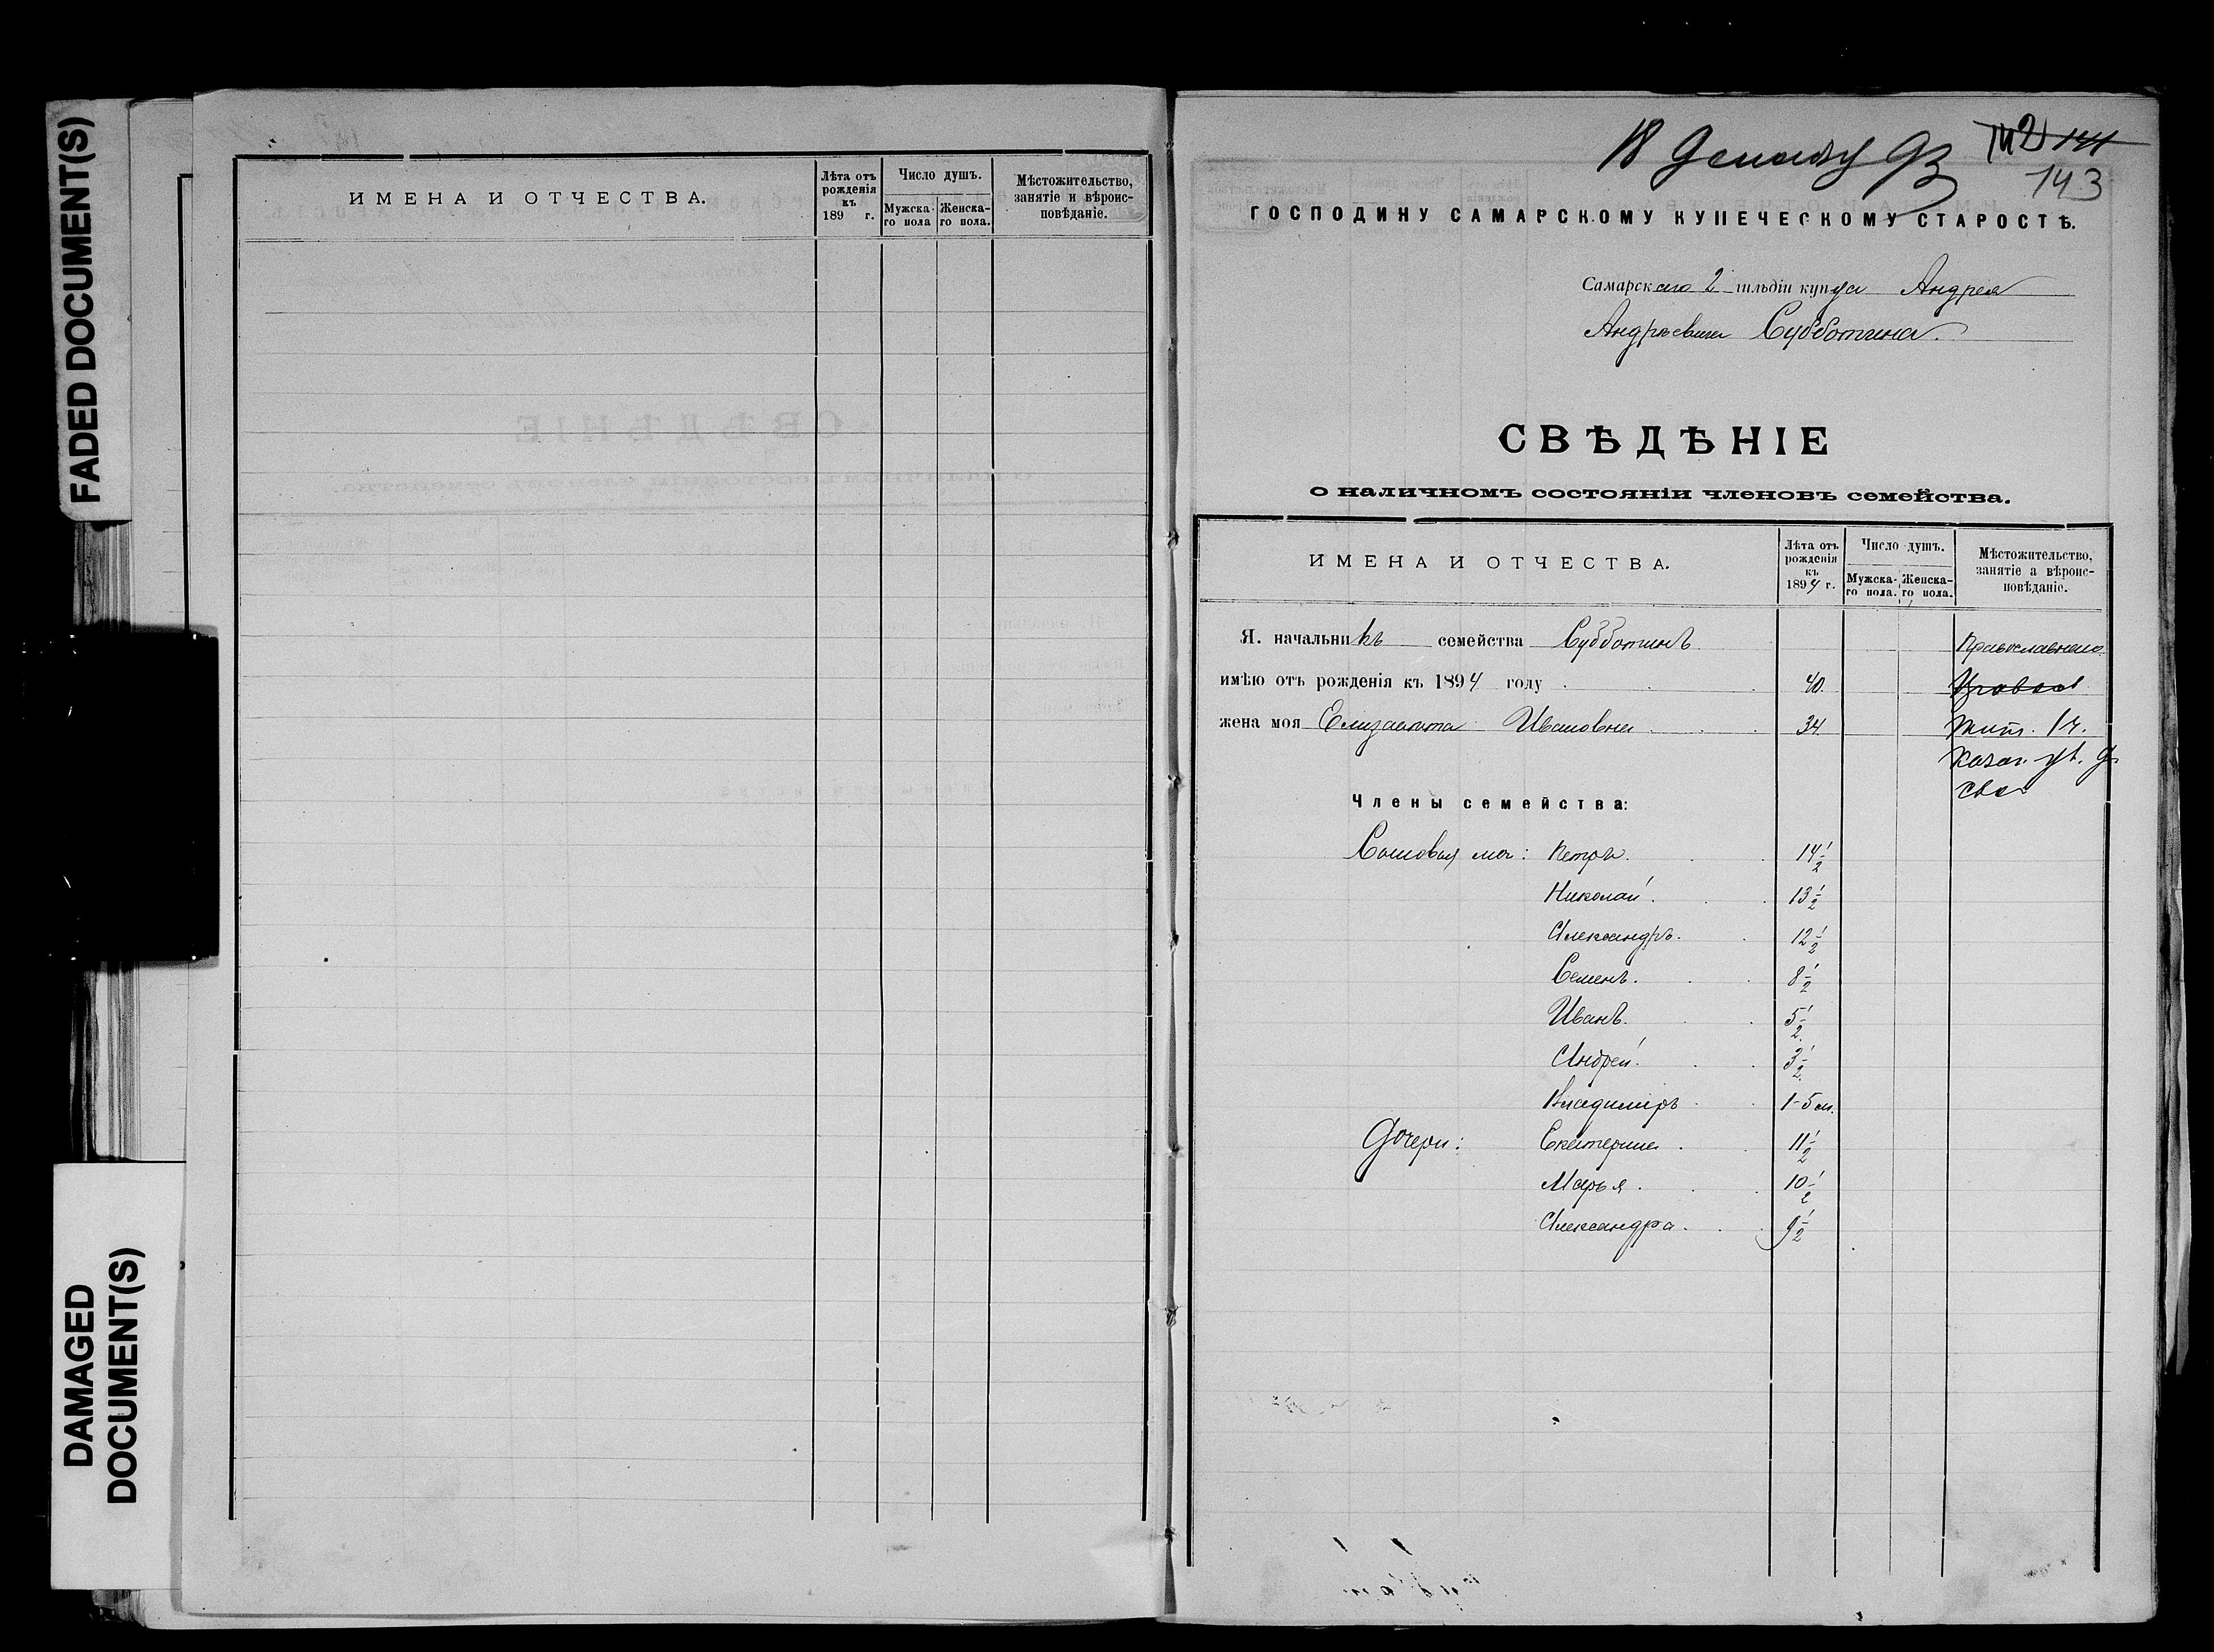 FADED DOCUMENT(S)
DAMAGED
DOCUMENT(S)
ИМЕНА И ОТЧЕСТВА.
Лѣта отъ рожденія къ 189 г.
Число душъ.
Мужска-го пола
Женска-го пола.
Мѣстожительство, занятіе и вѣроис-повѣданіе.
18 Декабря 93
143
ГОСПОДИНУ САМАРСКОМУ КУПЕЧЕСКОМУ СТАРОСТѢ.
Самарскаго 2 гильдіи купца Андрея
Андреевича Субботина.
СВѢДѢНІЕ
о наличномъ состояніи членовъ семейства.
ИМЕНА И ОТЧЕСТВА.
Лѣта отъ рожденія къ 1894 г.
Число душъ.
Мужска-го пола.
Женска-го пола.
Мѣстожительство, занятіе а вѣроис-повѣданіе.
Я. начальникъ семейства Субботинъ Православнаго
имѣю отъ рожденія къ 1894 году 40.
жена моя Елизавета Ивановна 34. жит. 1 ч.
Казан. ул. д.
сво
Члены семейства:
Сыновья мои: Петръ. 14 1/2
Николай. 13 1/2
Александръ. 12 1/2
Семенъ. 8 1/2
Иванъ. 5 1/2
Андрей. 3 1/2
Владиміръ 1-5 м.
Дочери: Екатерина. 11 1/2
Марья. 10 1/2
Александра. 9 1/2